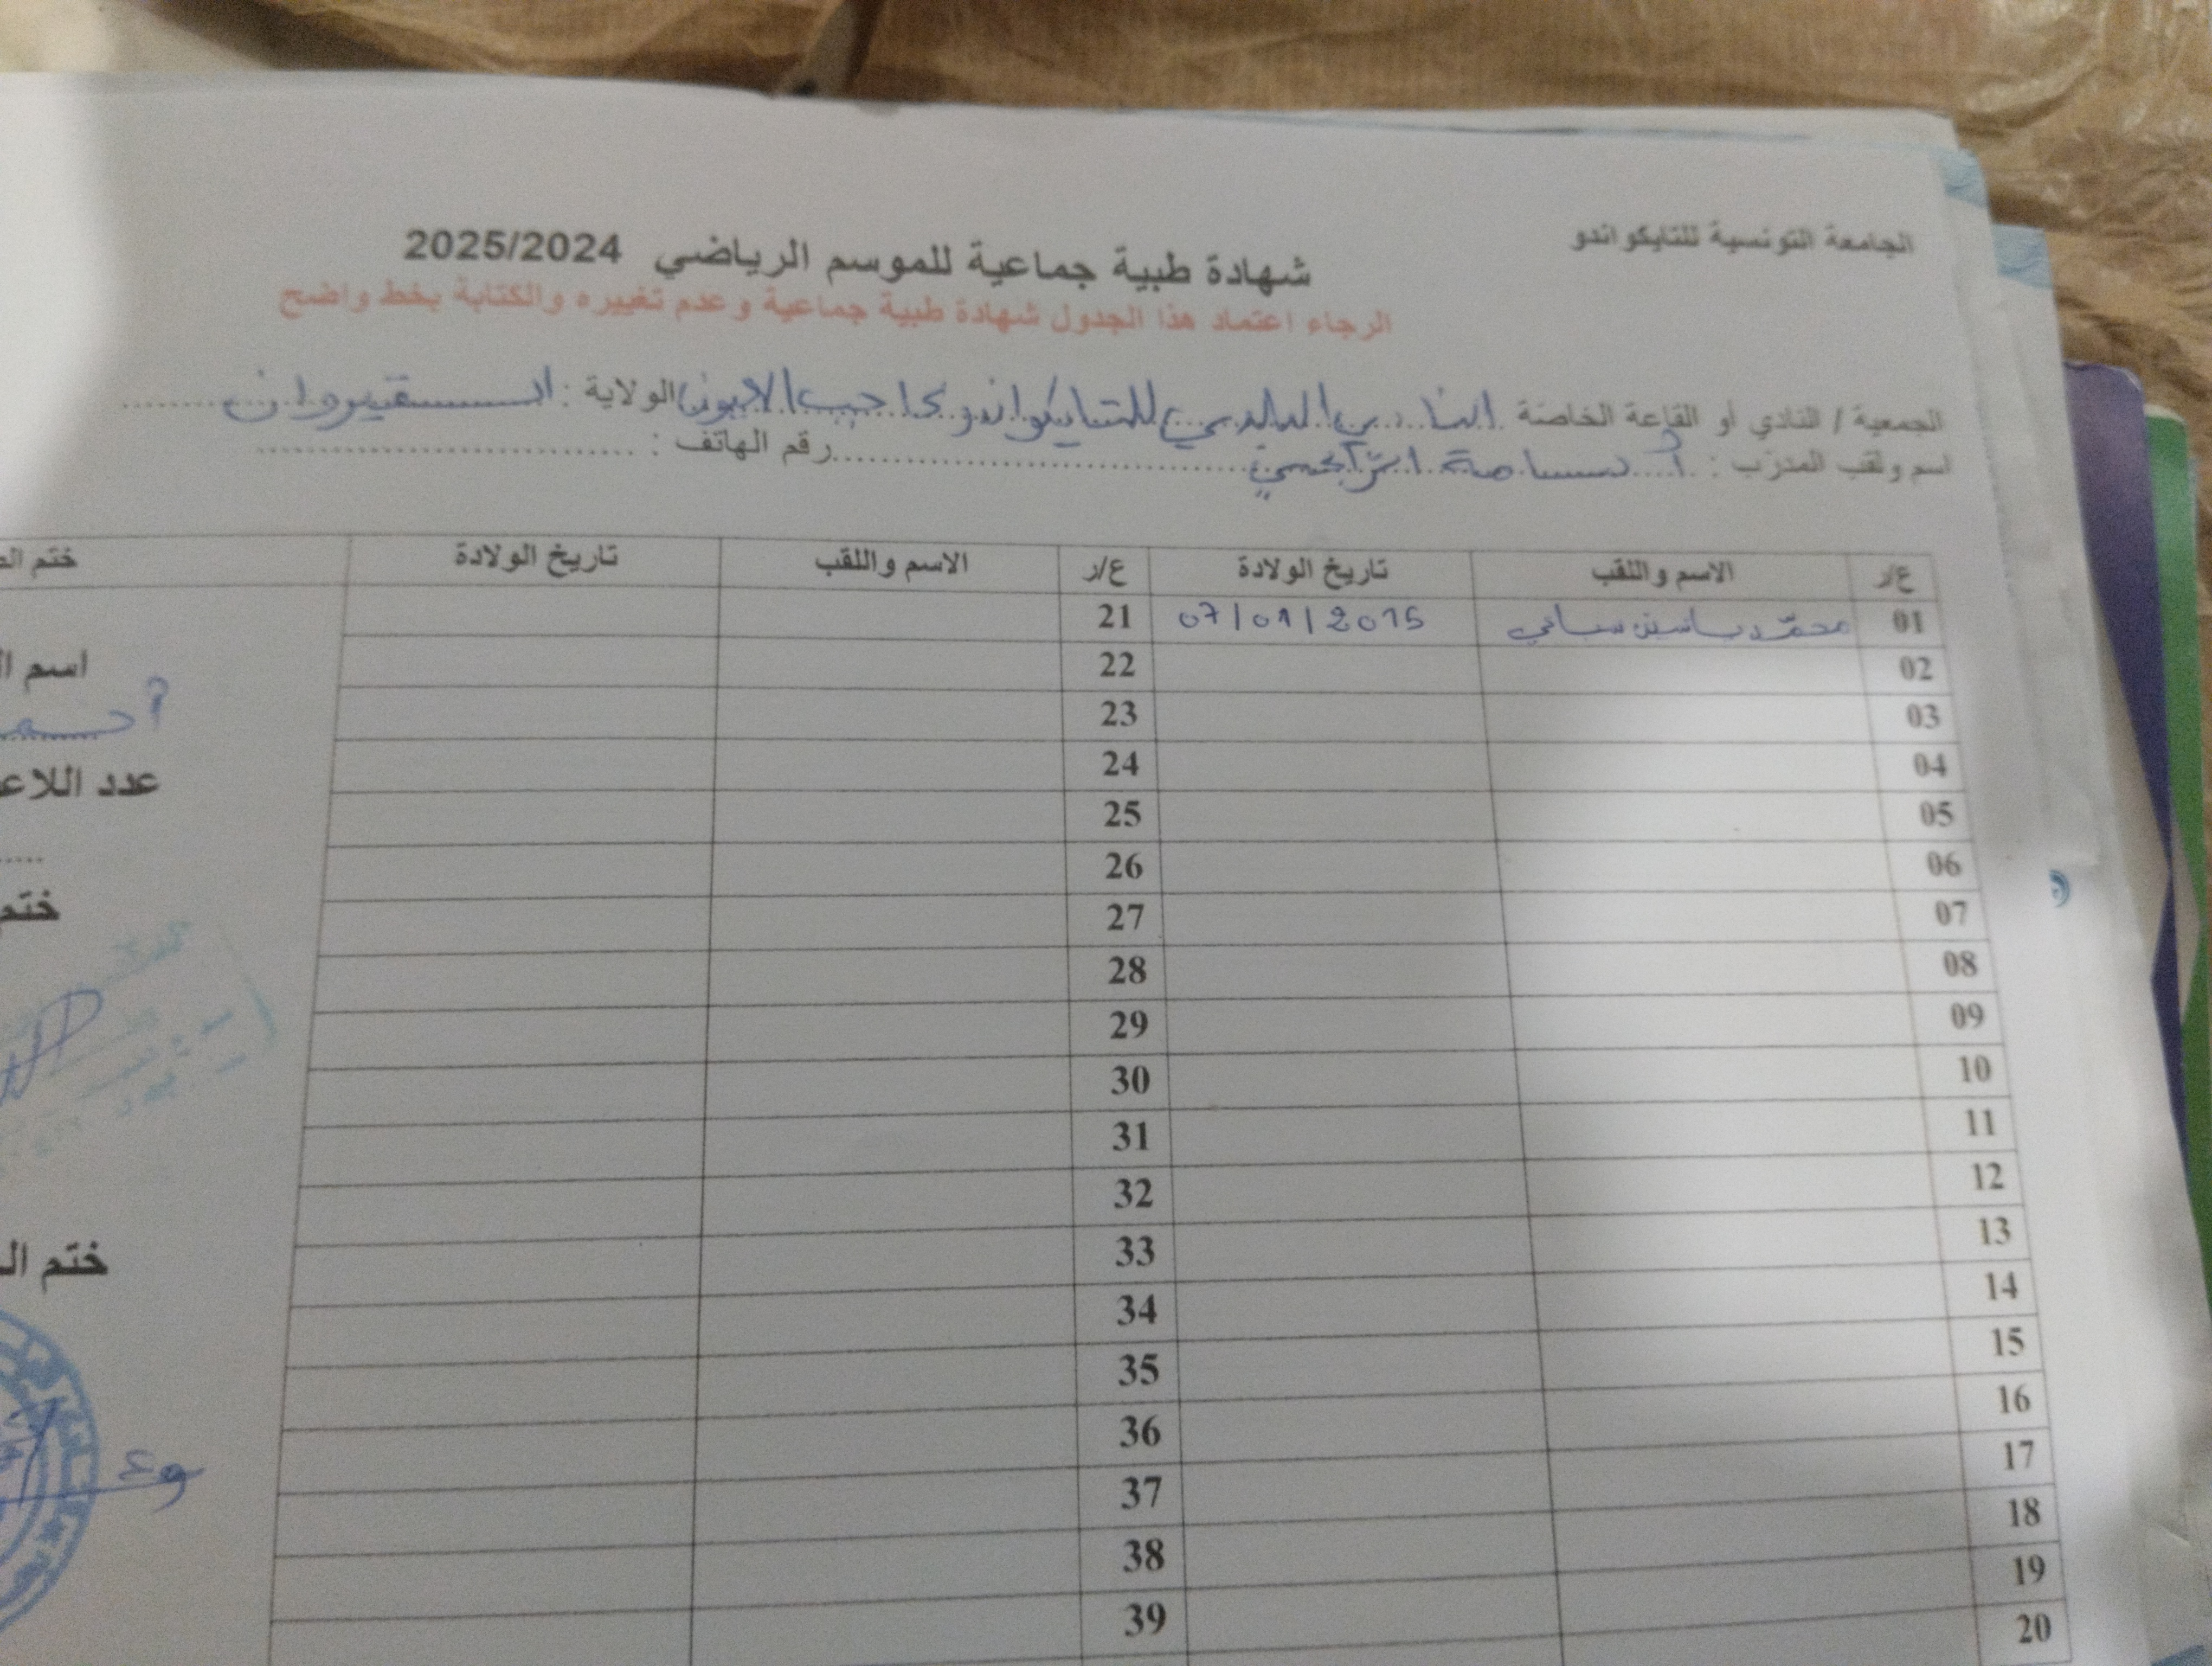 الجامعة التونسية للتايكواندو
شهادة طبية جماعية للموسم الرياضي 2025/2024
الرجاء اعتماد هذا الجدول شهادة طبية جماعية وعدم تغييره والكتابة بخط واضح
الجمعية / النادي أو القاعة الخاصة النادي البلدي للتايكواندو بحاجب العيون الولاية : القيروان
اسم ولقب المدرب : أسامة رقم الهاتف :
ع/ر الاسم واللقب تاريخ الولادة ع/ر الاسم واللقب تاريخ الولادة ختم
01 محمد ياسين 07/01/2015 21
02 22
03 23
04 24
05 25
06 26
07 27
08 28
09 29
10 30
11 31
12 32
13 33
14 34
15 35
16 36
17 37
18 38
19 39
20
اسم
عدد
ختم
ختم